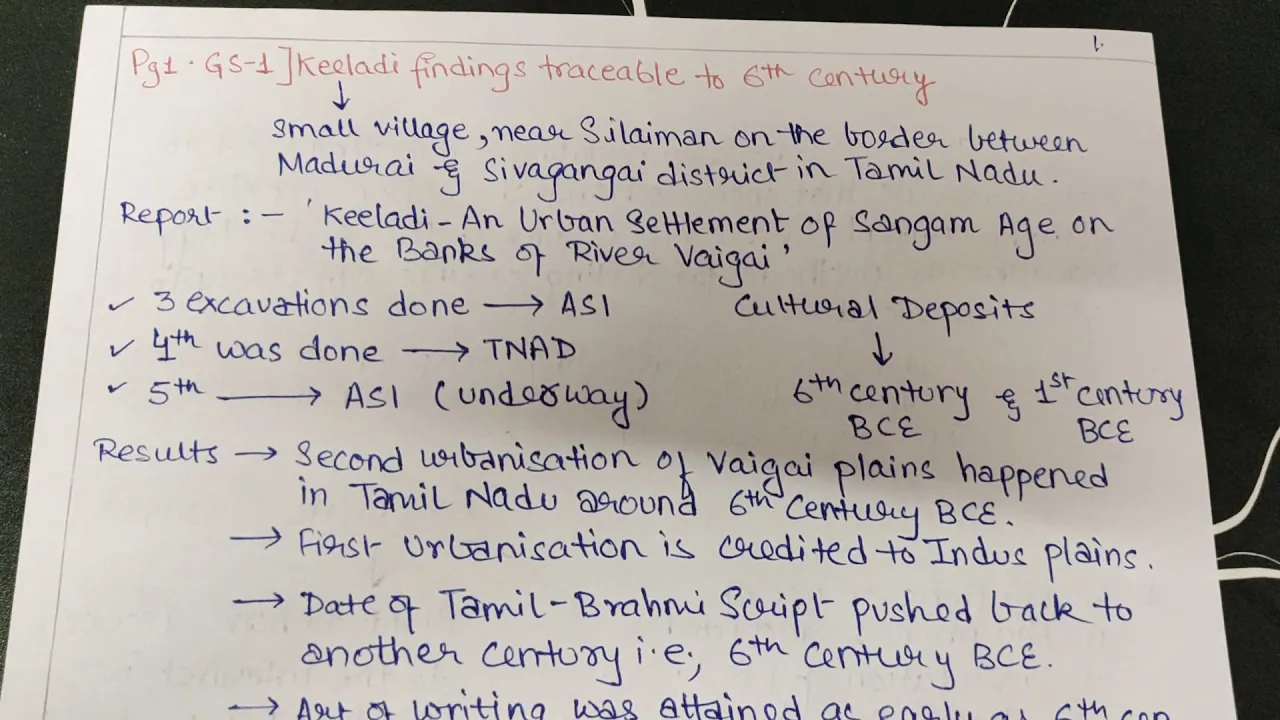 1.
Pg1. GS-1] Keeladi findings traceable to 6th century
↓
small village, near Silaiman on the border between
Madurai & Sivagangai district in Tamil Nadu.
Report :- 'Keeladi - An Urban Settlement of Sangam Age on
the Banks of River Vaigai'
✓ 3 excavations done → ASI
✓ 4th was done → TNAD
✓ 5th → ASI (underway)
Cultural Deposits
↓
6th century & 1st century
BCE BCE
Results → Second urbanisation of Vaigai plains happened
in Tamil Nadu around 6th Century BCE.
→ First Urbanisation is credited to Indus plains.
→ Date of Tamil-Brahmi Script pushed back to
another century i.e., 6th Century BCE.
→ Art of writing was attained as early as 6th cen